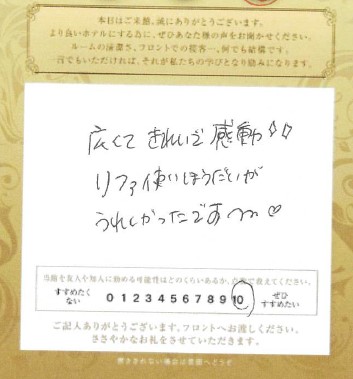 本日はご来館、誠にありがとうございます。
より良いホテルにする為に、ぜひあなた様の声をお聞かせください。
ルームの清潔さ、フロントでの接客…、何でも結構です。
一言でもいただければ、それが私たちの学びとなり励みになります。
広くて きれいで 感動♢♢
リファ使いほうだいが
うれしかったです〰♡
当館を友人や知人に勧める可能性はどのくらいあるか、点数で教えてください。
すすめたくない 0 1 2 3 4 5 6 7 8 9 10 ぜひすすめたい
ご記入ありがとうございます。フロントへお渡しください。
ささやかなお礼をさせていただきます。
書ききれない場合は裏面へどうぞ